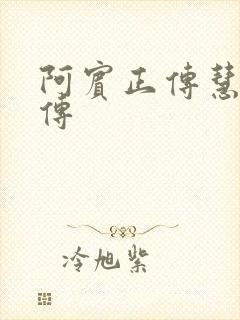 阿賓正傳慧
傳
冷旭紫